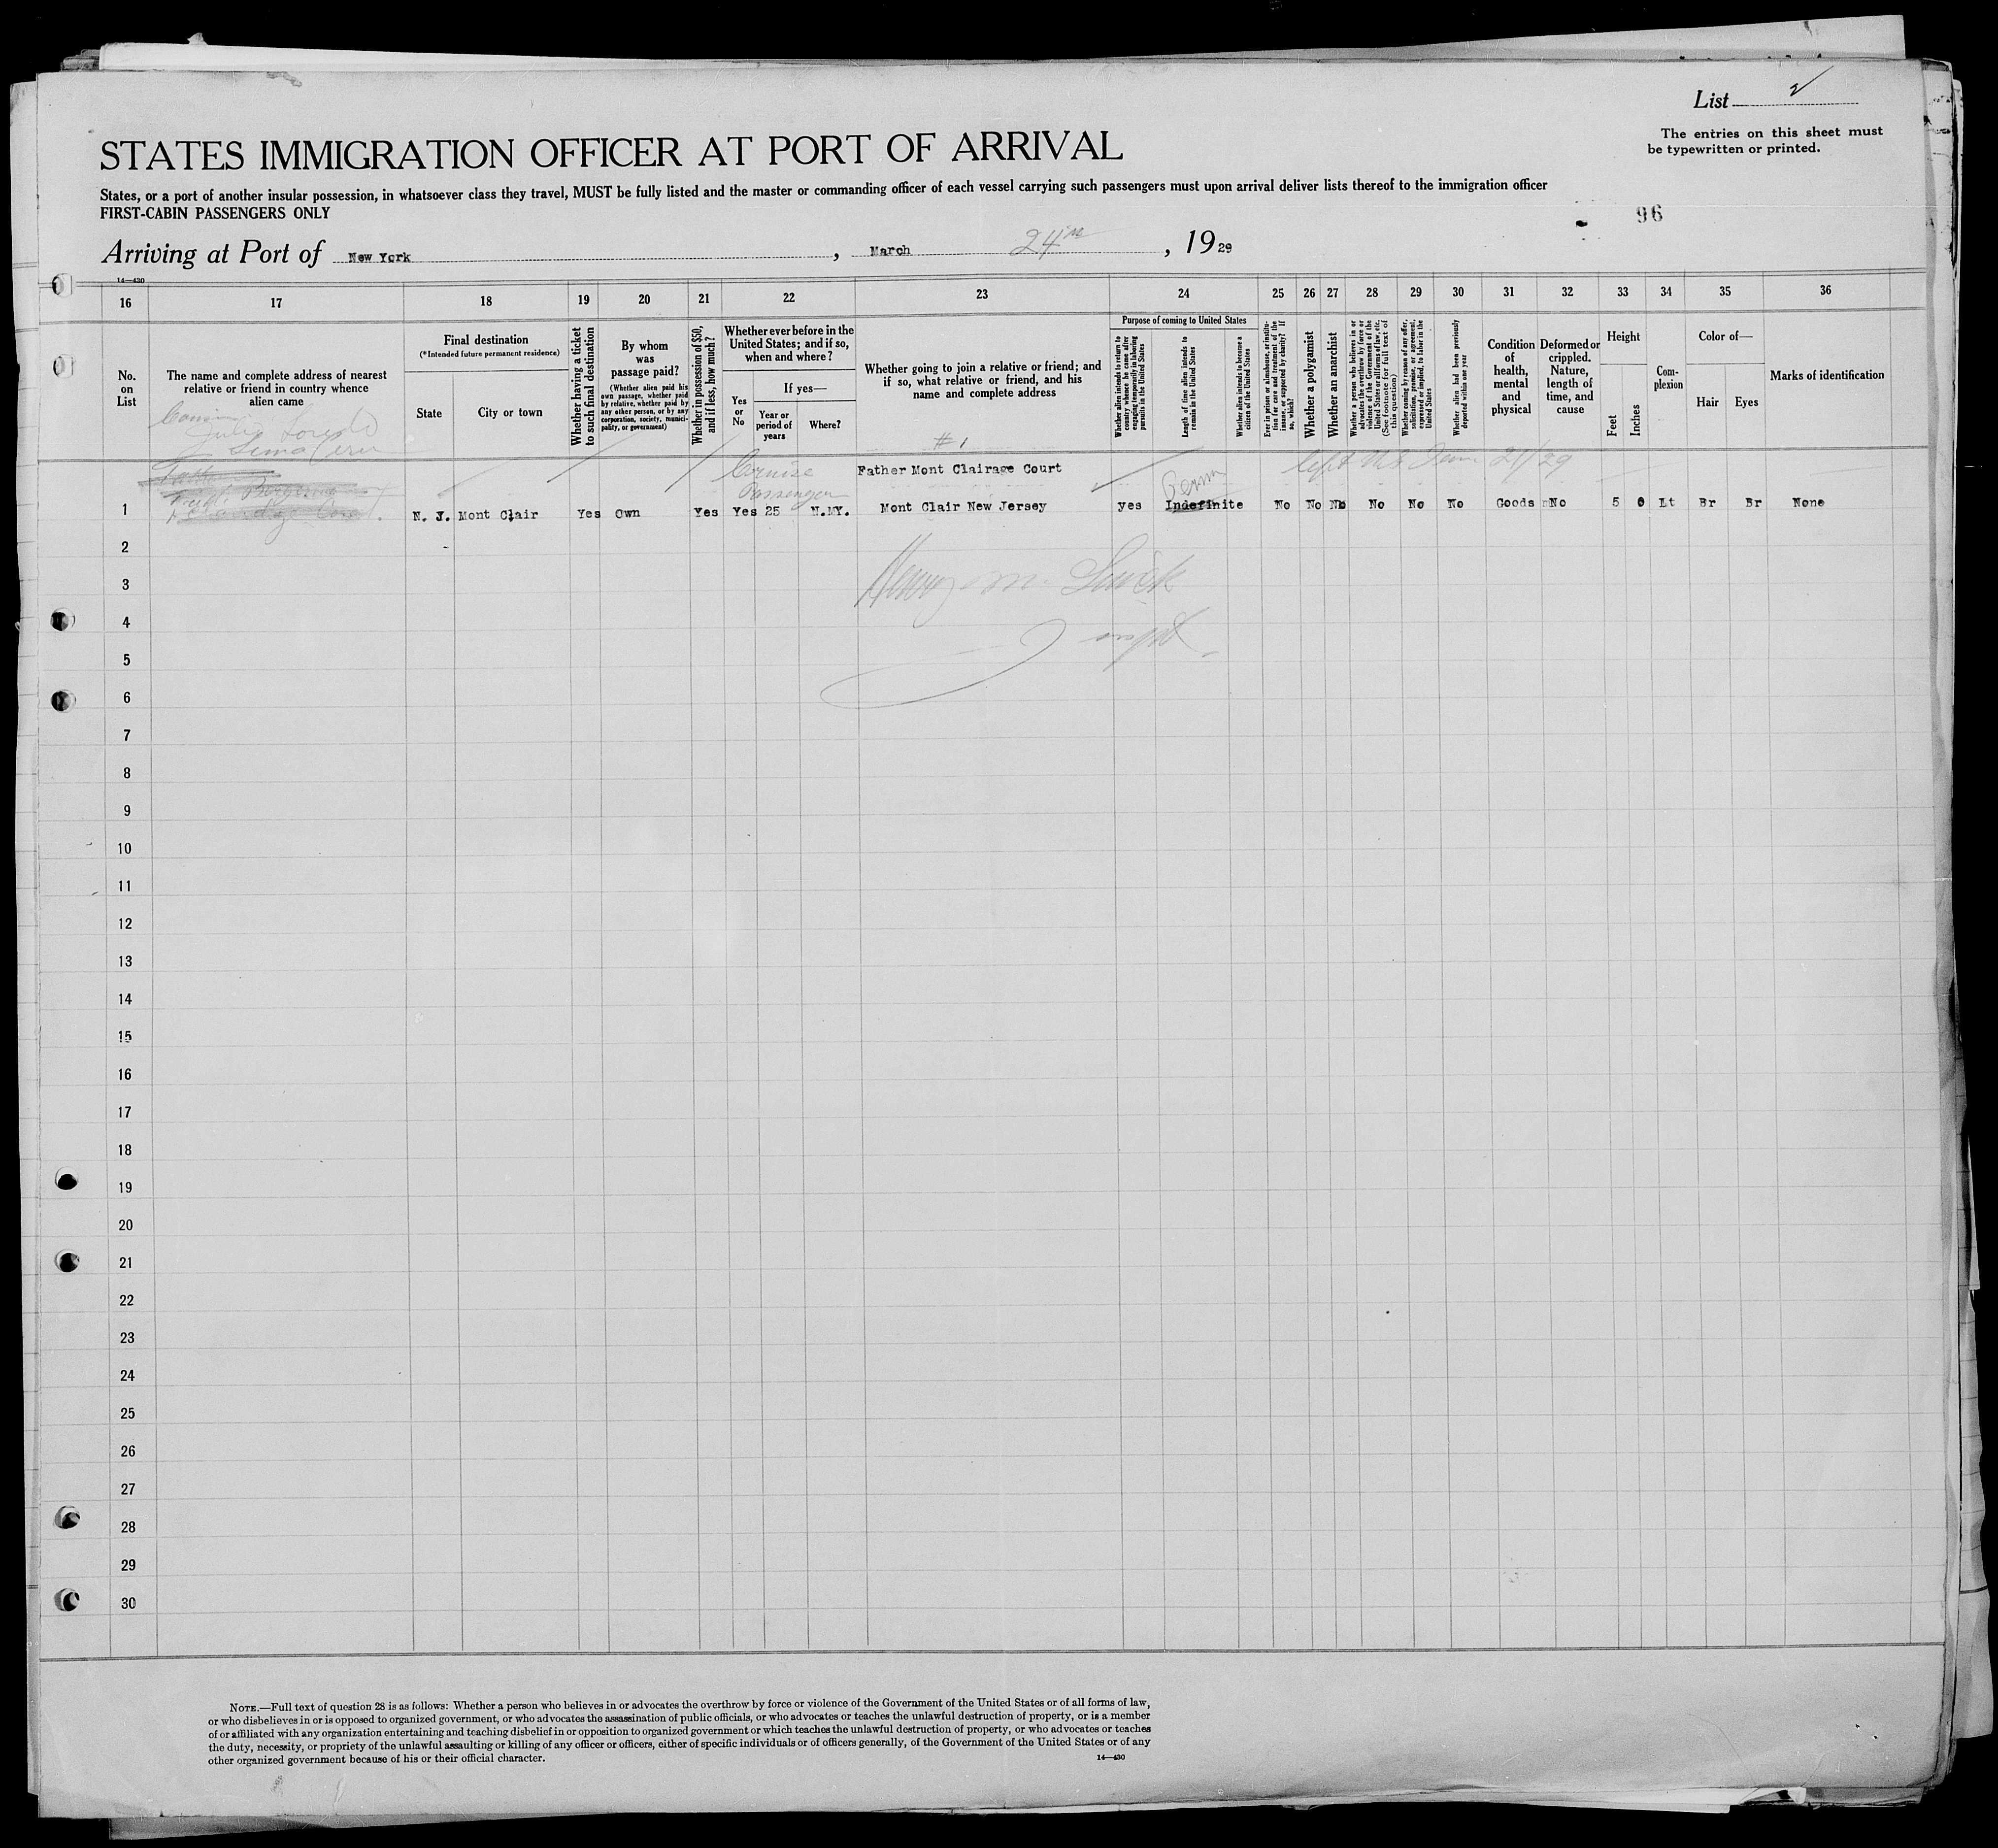 List 2
The entries on this sheet must
be typewritten or printed.
STATES IMMIGRATION OFFICER AT PORT OF ARRIVAL
States, or a port of another insular possession, in whatsoever class they travel, MUST be fully listed and the master or commanding officer of each vessel carrying such passengers must upon arrival deliver lists thereof to the immigration officer
FIRST-CABIN PASSENGERS ONLY
96
Arriving at Port of New York , March 24th , 1929
14—430
16 17 18 19 20 21 22 23 24 25 26 27 28 29 30 31 32 33 34 35 36
No.
on
List
The name and complete address of nearest
relative or friend in country whence
alien came
Final destination
(*Intended future permanent residence)
State
City or town
Whether having a ticket
to such final destination
By whom
was
passage paid?
(Whether alien paid his
own passage, whether paid
by relative, whether paid by
any other person, or by any
corporation, society, munici-
pality, or government)
Whether in possession of $50,
and if less, how much?
Whether ever before in the
United States; and if so,
when and where?
Yes
or
No
If yes—
Year or
period of
years
Where?
Whether going to join a relative or friend; and
if so, what relative or friend, and his
name and complete address
Purpose of coming to United States
Whether alien intends to return to
country whence he came after
engaging temporarily in laboring
pursuits in the United States
Length of time alien intends to
remain in the United States
Whether alien intends to become a
citizen of the United States
Ever in prison or almshouse, or institu-
tion for care and treatment of the
insane, or supported by charity? If
so, which?
Whether a polygamist
Whether an anarchist
Whether a person who believes in or
advocates the overthrow by force or
violence of the Government of the
United States or all forms of law, etc.
(See footnote for full text of
this question)
Whether coming by reason of any offer,
solicitation, promise, or agreement,
expressed or implied, to labor in the
United States
Whether alien had been previously
deported within one year
Condition
of
health,
mental
and
physical
Deformed or
crippled.
Nature,
length of
time, and
cause
Height
Feet
Inches
Com-
plexion
Color of—
Hair
Eyes
Marks of identification
Lima Peru
# 1
Cruise
Passenger
Father Mont Clairage Court
Perm
1 N. J. Mont Clair Yes Own Yes Yes 25 N.MY. Mont Clair New Jersey yes Indefinite No No No No No No Goods No 5 0 Lt Br Br None
2
3
4
5
6
7
8
9
10
11
12
13
14
15
16
17
18
19
20
21
22
23
24
25
26
27
28
29
30
NOTE.—Full text of question 28 is as follows: Whether a person who believes in or advocates the overthrow by force or violence of the Government of the United States or of all forms of law,
or who disbelieves in or is opposed to organized government, or who advocates the assassination of public officials, or who advocates or teaches the unlawful destruction of property, or is a member
of or affiliated with any organization entertaining and teaching disbelief in or opposition to organized government or which teaches the unlawful destruction of property, or who advocates or teaches
the duty, necessity, or propriety of the unlawful assaulting or killing of any officer or officers, either of specific individuals or of officers generally, of the Government of the United States or of any
other organized government because of his or their official character.
14—430